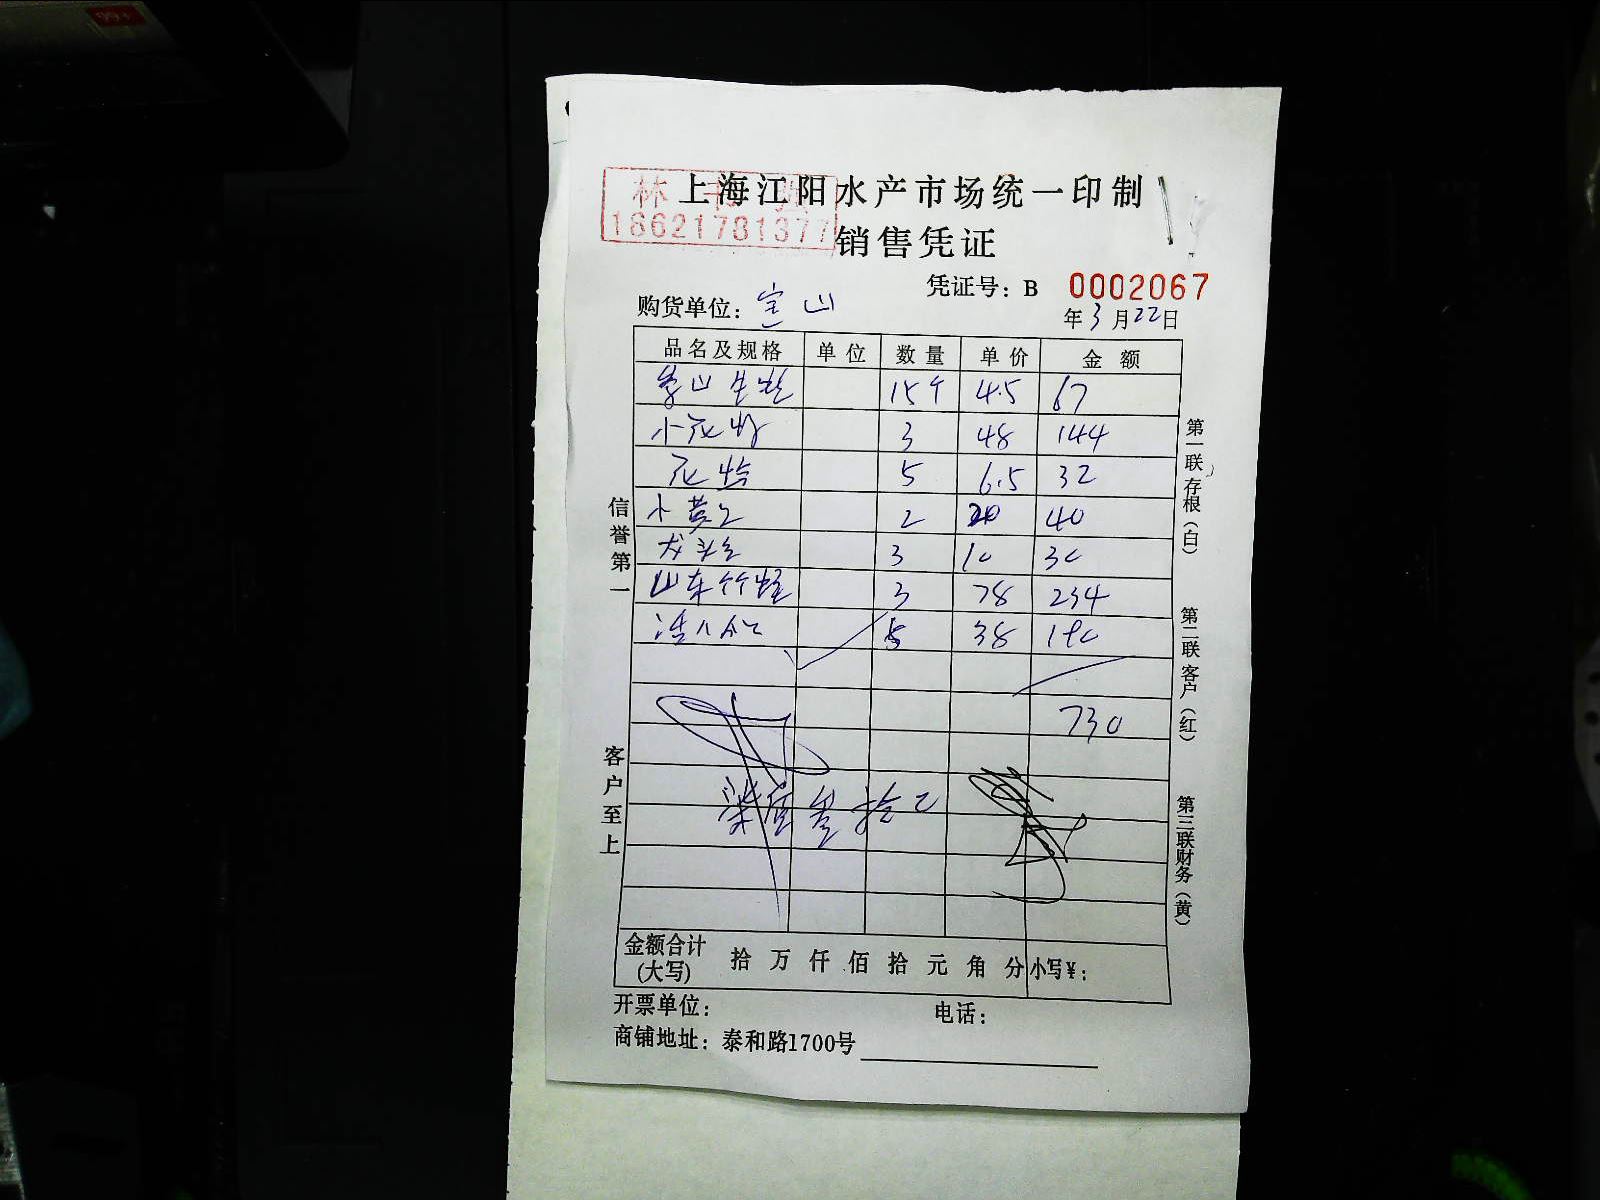 99+
上海江阳水产市场统一印制
林
18621781377
销售凭证
凭证号：B 0002067
购货单位：宝山
年3月22日
品名及规格 单位 数量 单价 金额
象山生蚝 15个 4.5 67
小花蛤 3 48 144
花蛤 5 6.5 32
小黄 2 20 40
龙头 3 10 30
山东竹蛏 3 78 234
5 38 190
730
柒佰叁拾
信誉第一
客户至上
第一联存根（白）
第二联客户（红）
第三联财务（黄）
金额合计 拾 万 仟 佰 拾 元 角 分 小写¥：
(大写)
开票单位： 电话：
商铺地址：泰和路1700号